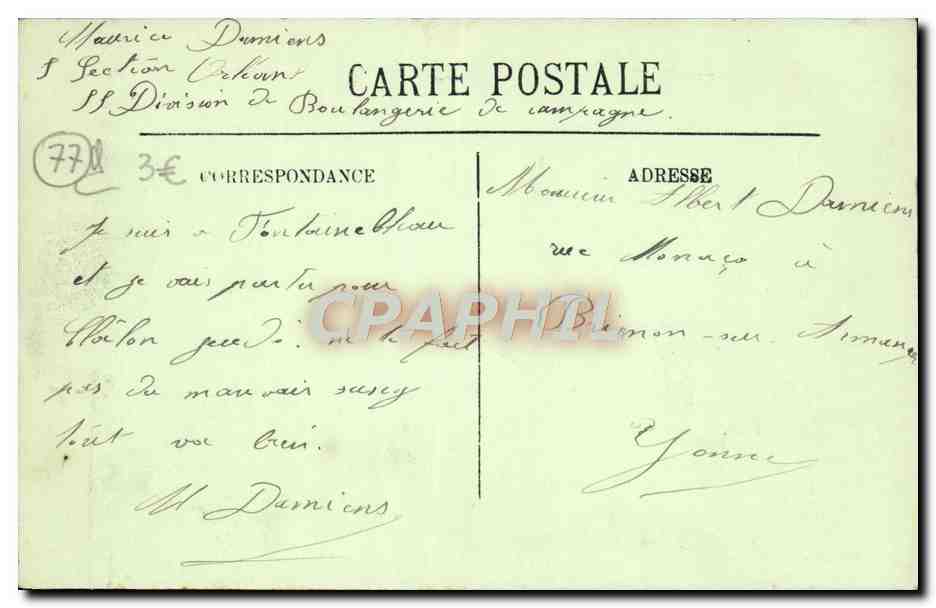 Maurice Damiens
Section
CARTE POSTALE
Division de Boulangerie de campagne.
77
3€
CORRESPONDANCE
ADRESSE
Je suis a Fontainebleau
et je vais partir pour
Châlon jeudi. ne te fait
pas du mauvais sang
tout va bien.
M Damiens
Monsieur Albert Damiens
rue Monaço à
Brienon-sur-Armançon
Yonne
CPAPHIL